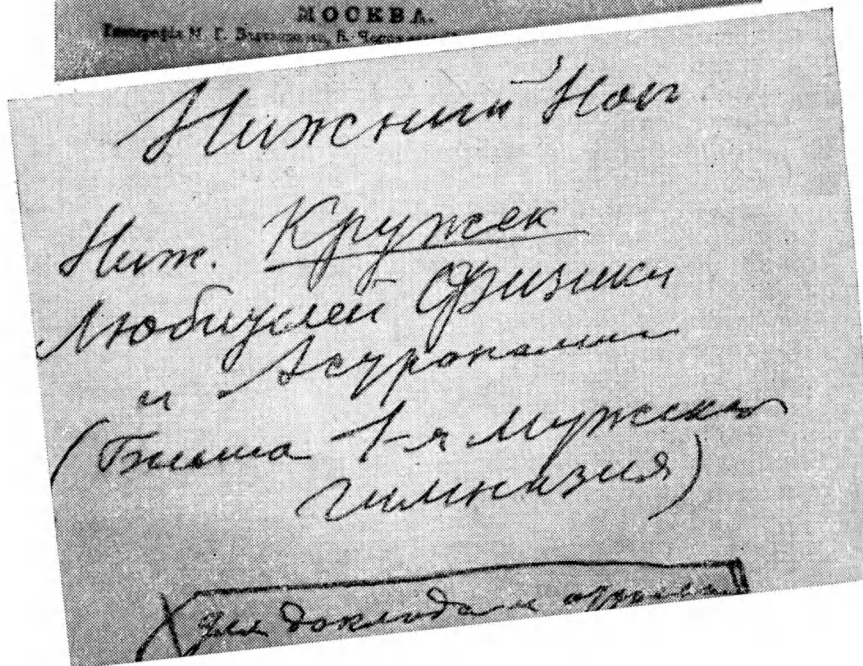 МОСКВА.
Типографія М. Г.
Нижний Новг
Ниж. Кружек
Любителей Физики
и Астрономии
(Бывшая 1-я Мужская
гимназия)
Для доклада и